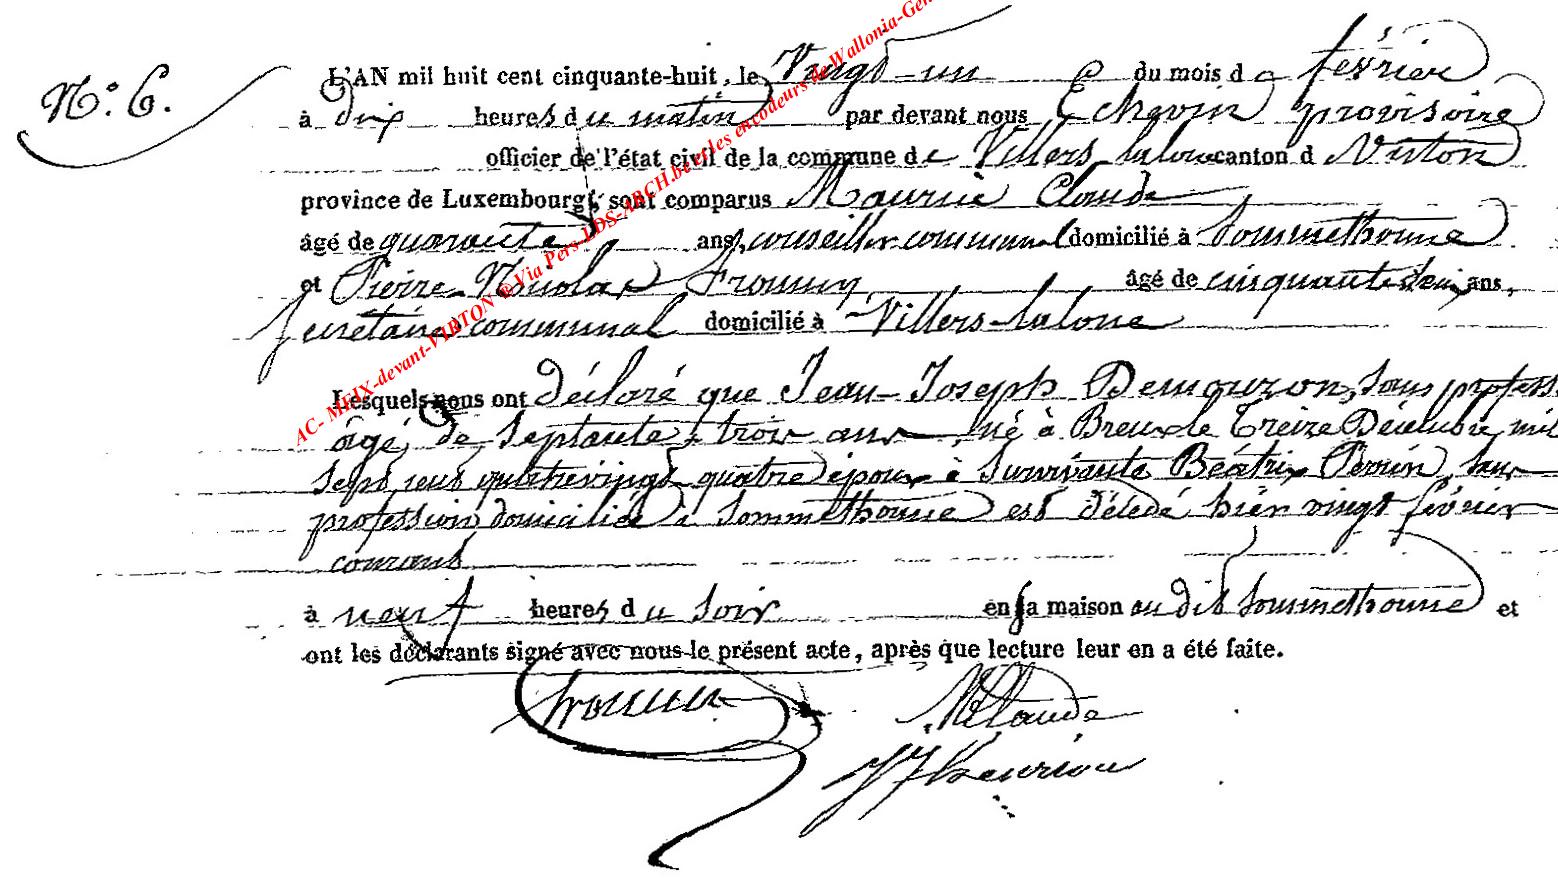 N.º 6.
L'AN mil huit cent cinquante-huit, le Vingt-un du mois de février
à dix heures du matin par devant nous Echevin provisoire
officier de l'état civil de la commune de Villers-laloue canton d Virton
province de Luxembourg, sont comparus Maurice Claude
âgé de quarante ans, conseiller communal domicilié à Sommethonne
et Pierre-Nicolas Fromen âgé de cinquante deux ans,
secrétaire communal domicilié à Villers-laloue
Lesquels nous ont déclaré que Jean-Joseph Demouzon, sans profess
âgé de septante trois ans, né à Breux le treize Décembre mil
sept cent quatrevingt quatre époux à survivante Béatrix Perrin, sans
profession domiciliée à Sommethonne est décédé hier vingt février
courant
à neuf heures du soir en sa maison au dit Sommethonne et
ont les déclarants signé avec nous le présent acte, après que lecture leur en a été faite.
MClaude
JJHenrion
AC- MEIX-devant-VIRTON ® Via Pers-LDS-ARCH.be et les encodeurs de Wallonia-Gen